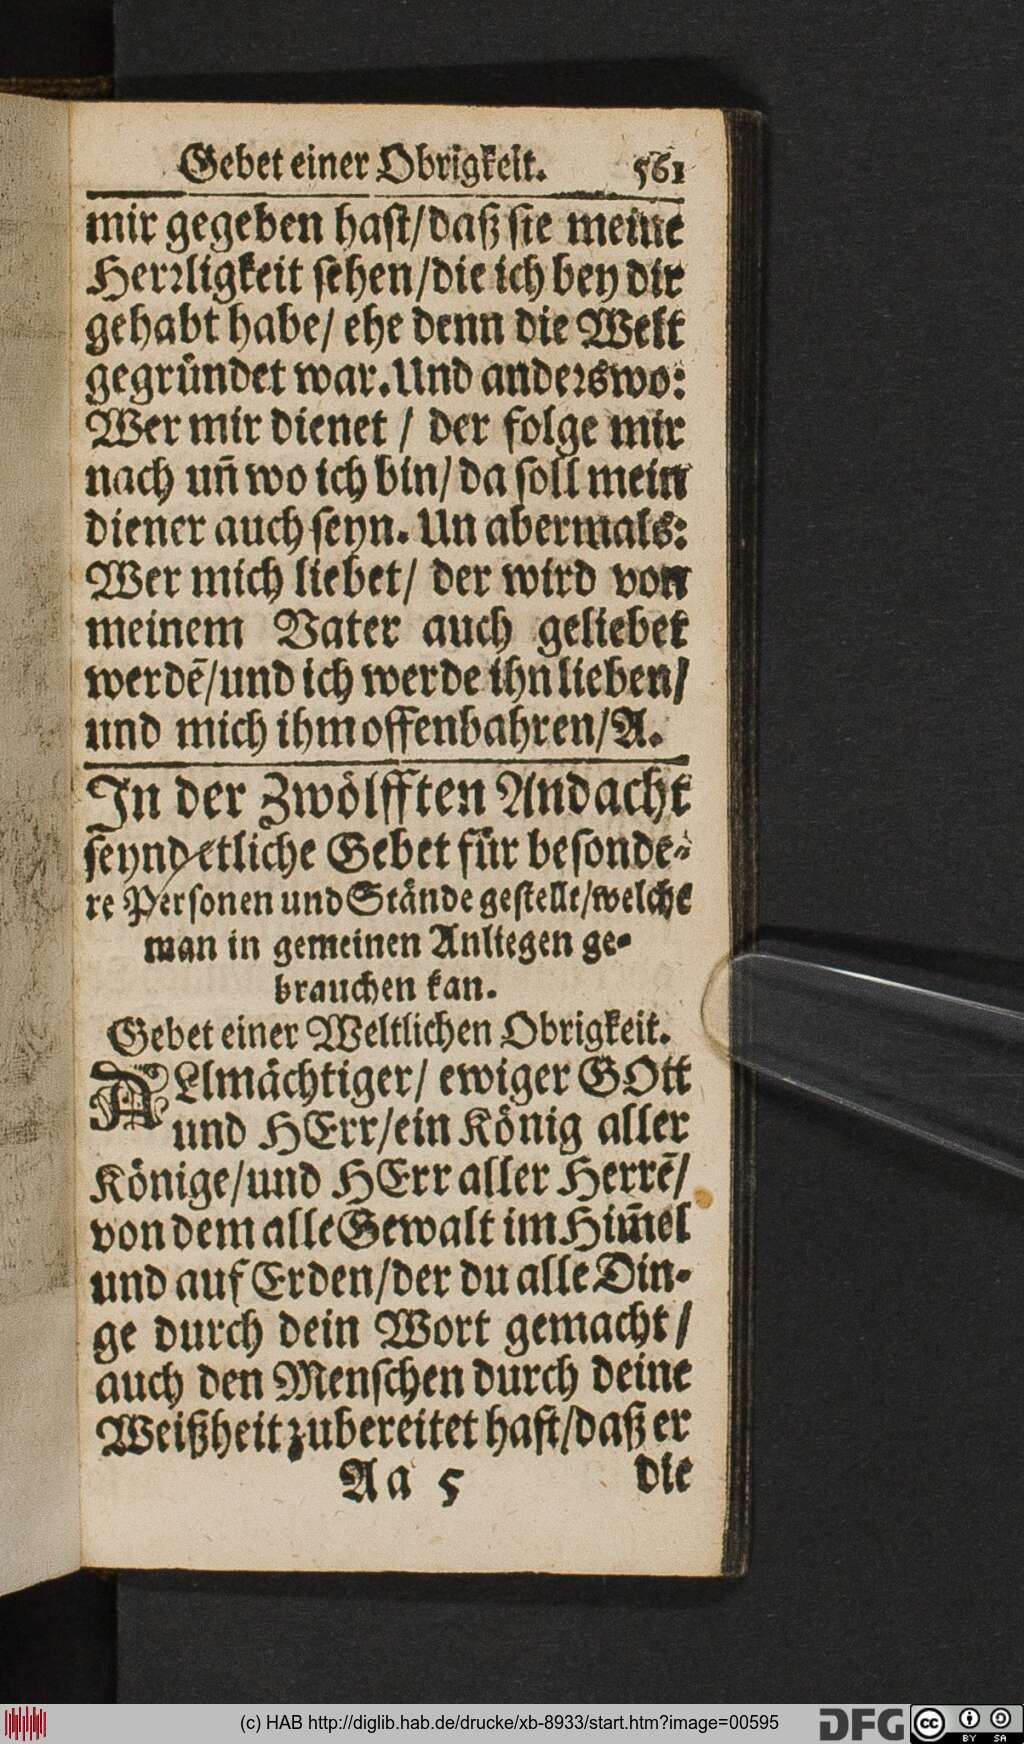 Gebet einer Obrigkeit. 561
mir gegeben hast/daß sie meine
Herꝛligkeit sehen/die ich bey dir
gehabt habe/ ehe denn die Welt
gegründet war. Und anderswo:
Wer mir dienet / der folge mir
nach uñ wo ich bin/ da soll mein
diener auch seyn. Un abermals:
Wer mich liebet/ der wird von
meinem Vater auch geliebet
werdē/und ich werde ihn lieben/
und mich ihm offenbahren/A.
In der Zwölfften Andacht
seynd etliche Gebet für besonde-
re Personen und Stände gestellt/welche
man in gemeinen Anliegen ge-
brauchen kan.
Gebet einer Weltlichen Obrigkeit.
ALlmächtiger/ ewiger GOtt
und HErr/ein König aller
Könige/und HErr aller Herrē/
von dem alle Gewalt im Him̄el
und auf Erden/der du alle Din-
ge durch dein Wort gemacht/
auch den Menschen durch deine
Weißheit zubereitet hast/daß er
Aa 5 die
(c) HAB http://diglib.hab.de/drucke/xb-8933/start.htm?image=00595
DFG
cc
BY SA